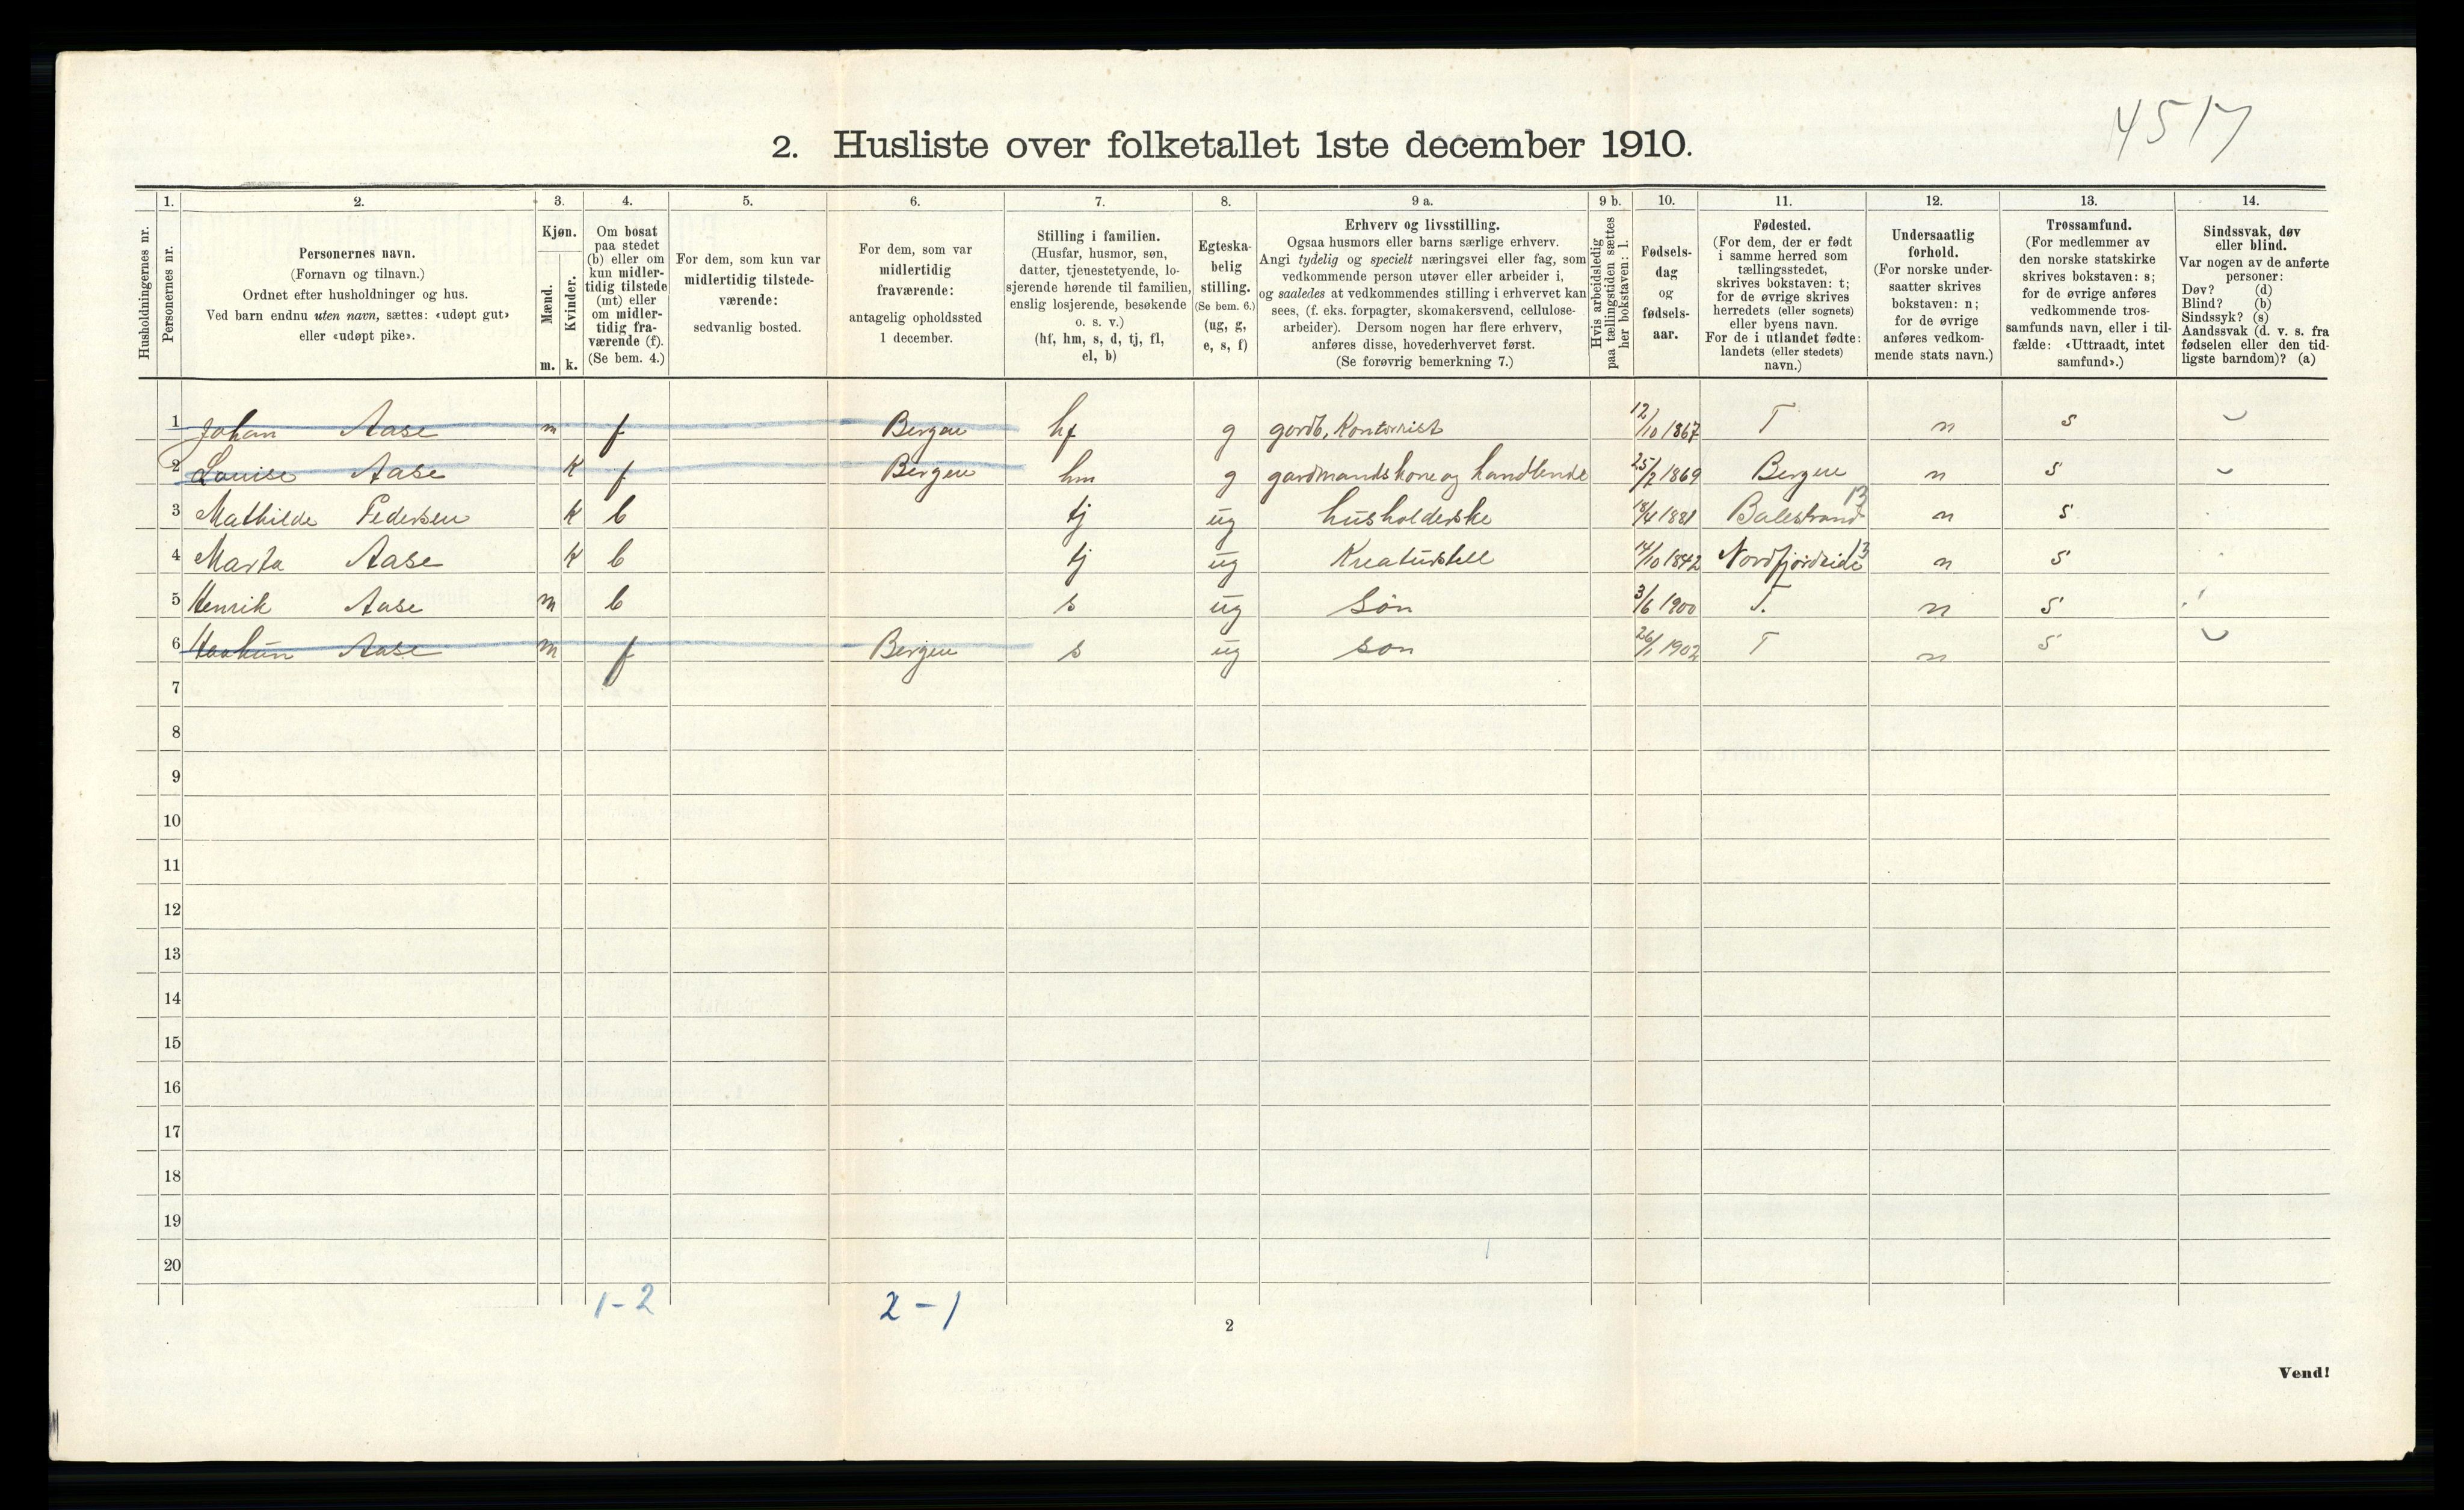 4517
2. Husliste over folketallet 1ste december 1910.
1. 2. 3. 4. 5. 6. 7. 8. 9 a. 9 b. 10. 11. 12. 13. 14.
Husholdningernes nr.
Personernes nr.
Personernes navn.
(Fornavn og tilnavn.)
Ordnet efter husholdninger og hus.
Ved barn endnu uten navn, sættes: «udøpt gut»
eller «udøpt pike».
Kjøn.
Mænd.
Kvinder.
m. k.
Om bosat
paa stedet
(b) eller om
kun midler-
tidig tilstede
(mt) eller
om midler-
tidig fra-
værende (f).
(Se bem. 4.)
For dem, som kun var
midlertidig tilstede-
værende:
sedvanlig bosted.
For dem, som var
midlertidig
fraværende:
antagelig opholdssted
1 december.
Stilling i familien.
(Husfar, husmor, søn,
datter, tjenestetyende, lo-
sjerende hørende til familien,
enslig losjerende, besøkende
o. s. v.)
(hf, hm, s, d, tj, fl,
el, b)
Egteska-
belig
stilling.
(Se bem. 6.)
(ug, g,
e, s, f)
Erhverv og livsstilling.
Ogsaa husmors eller barns særlige erhverv.
Angi tydelig og specielt næringsvei eller fag, som
vedkommende person utøver eller arbeider i,
og saaledes at vedkommendes stilling i erhvervet kan
sees, (f. eks. forpagter, skomakersvend, cellulose-
arbeider). Dersom nogen har flere erhverv,
anføres disse, hovederhvervet først.
(Se forøvrig bemerkning 7.)
Hvis arbeidsledig
paa tællingstiden sættes
her bokstaven: l.
Fødsels-
dag
og
fødsels-
aar.
Fødested.
(For dem, der er født
i samme herred som
tællingsstedet,
skrives bokstaven: t;
for de øvrige skrives
herredets (eller sognets)
eller byens navn.
For de i utlandet fødte:
landets (eller stedets)
navn.)
Undersaatlig
forhold.
(For norske under-
saatter skrives
bokstaven: n;
for de øvrige
anføres vedkom-
mende stats navn.)
Trossamfund.
(For medlemmer av
den norske statskirke
skrives bokstaven: s;
for de øvrige anføres
vedkommende tros-
samfunds navn, eller i til-
fælde: «Uttraadt, intet
samfund».)
Sindssvak, døv
eller blind.
Var nogen av de anførte
personer:
Døv? (d)
Blind? (b)
Sindssyk? (s)
Aandssvak (d. v. s. fra
fødselen eller den tid-
ligste barndom)? (a)
1 Johan Aase m f Bergen hf g gordb, Kontorist 12/10 1867 T n s
2 Louise Aase K f Bergen hm g gardmandskone og handlende 25/2 1869 Bergen n s
3 Mathilde Pedersen K b tj ug husholderske 18/4 1881 Balestrand 13 n s
4 Marta Aase K b tj ug Kreaturstell 14/10 1842 Nordfjordeide 13 n s
5 Henrik Aase m b s ug Søn 3/6 1900 T. n s
6 Haakun Aase m f Bergen s ug søn 26/1 1902 T n s
7
8
9
10
11
12
13
14
15
16
17
18
19
20
1-2 2-1
2
Vend!